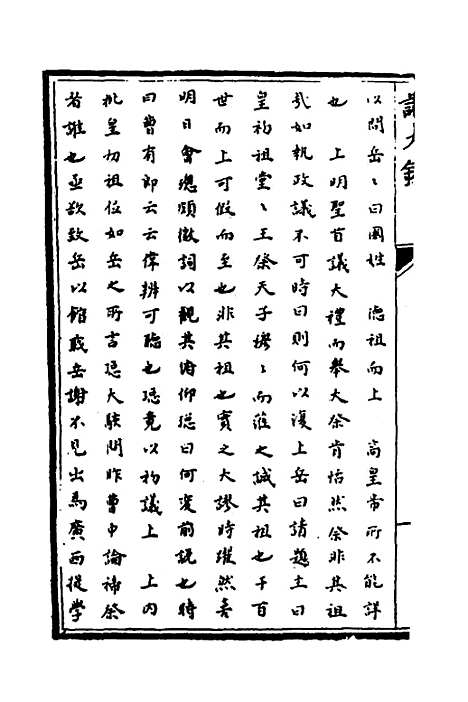 以問岳〻曰國姓　德祖而上　高皇帝所不能詳
也　上明聖百議大禮而舉大祭肯恬然祭非其祖
哉如執政議不可時曰則何以復上岳曰請題主曰
皇初祖堂〻王祭天子穆〻而蒞之誠其祖也千百
世而上可假而至也非其祖也實之大謬時躍然喜
明日會璁頗微詞以觀其俯仰璁曰何変前説也時
曰曹有郎云云偉辨可聽也璁竟以初議上　上内
批皇初祖位如岳之所言璁大駭問昨曹中論禘祭
者誰也亟欲致岳以館職岳謝不見出為廣西提學